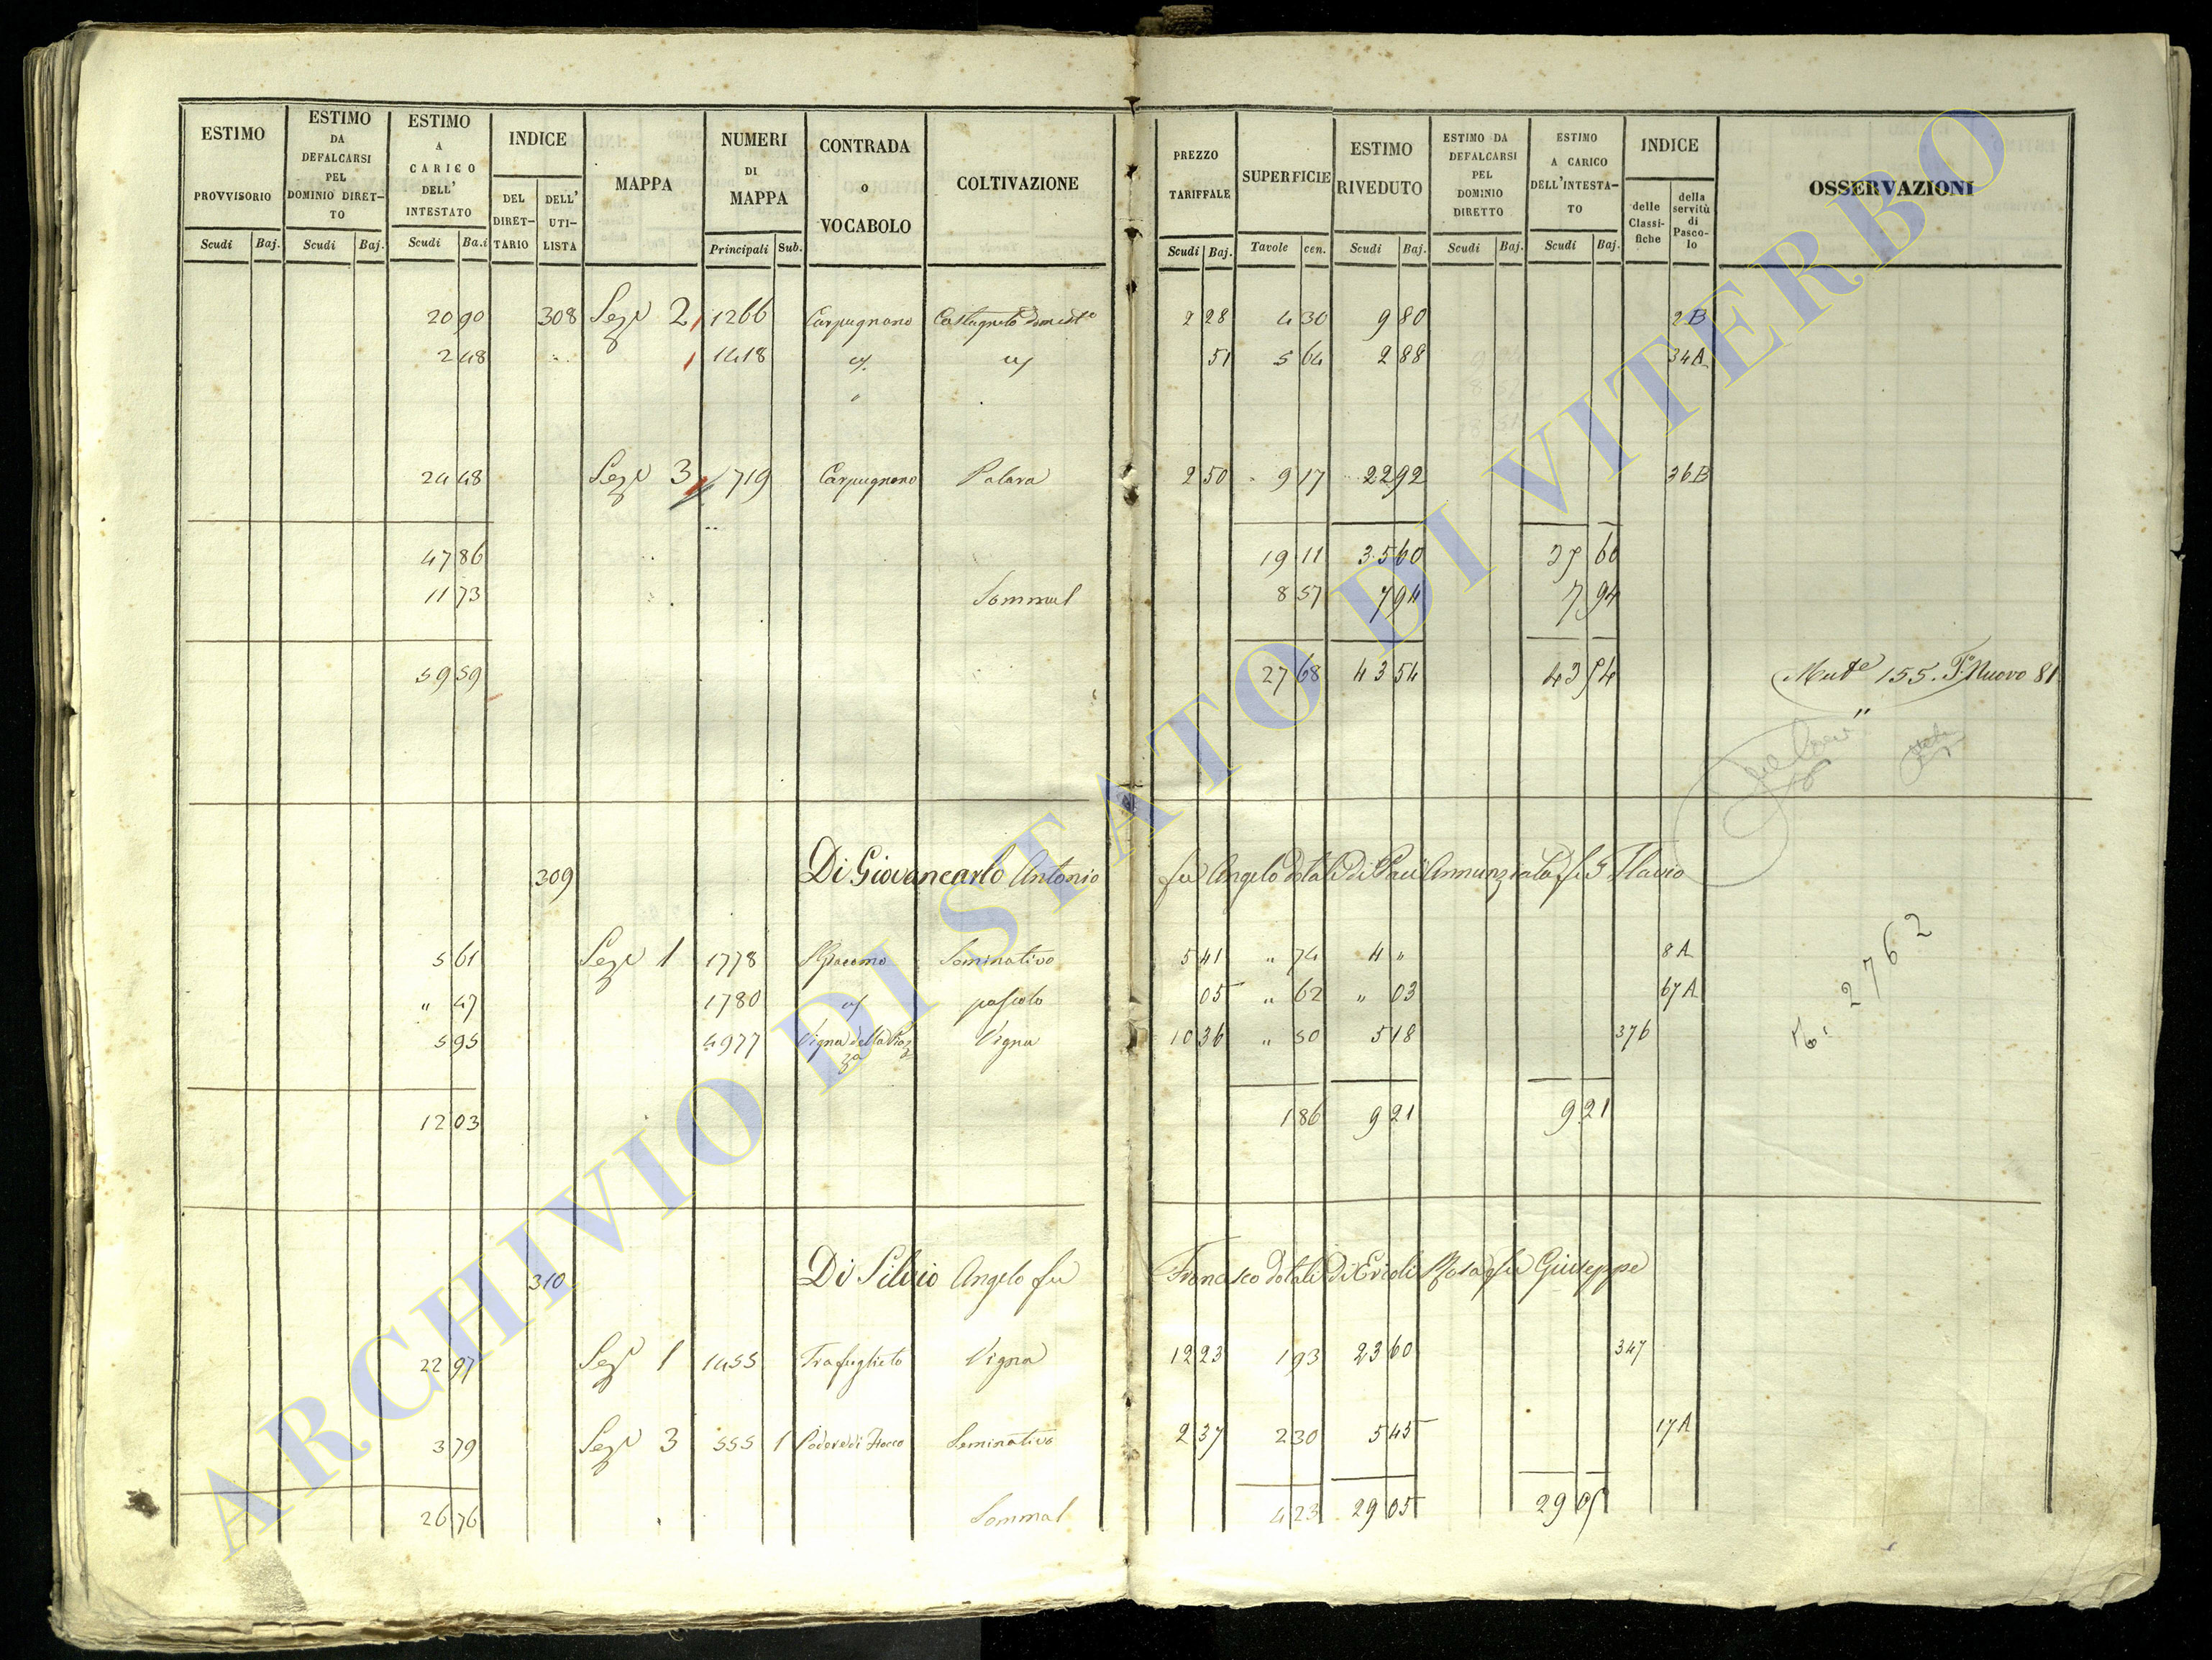 ESTIMO PROVVISORIO Scudi Baj.
ESTIMO DA DEFALCARSI PEL DOMINIO DIRET-TO Scudi Baj.
ESTIMO A CARICO DELL' INTESTATO Scudi Ba.i
INDICE DEL DIRET-TARIO DELL' UTI-LISTA
MAPPA
NUMERI DI MAPPA Principali Sub.
CONTRADA o VOCABOLO
COLTIVAZIONE
PREZZO TARIFFALE Scudi Baj.
SUPERFICIE Tavole cen.
ESTIMO RIVEDUTO Scudi Baj.
ESTIMO DA DEFALCARSI PEL DOMINIO DIRETTO Scudi Baj.
ESTIMO A CARICO DELL'INTESTA-TO Scudi Baj.
INDICE delle Classi-fiche della servitù di Pasco-lo
OSSERVAZIONI
20 90 308 Sez. 2 1266 Carpugnano Castagneto 2 28 4 30 9 80 2B
2 48 1418 51 5 64 2 88 34A
24 48 Sez. 3 719 Carpugnano Palara 2 50 9 17 22 92 36B
47 86 19 11 35 60 35 60
11 73 8 57 7 94 7 94
59 59 27 68 43 54 43 54 155. Nuovo 81
309 Di Giovancarlo Antonio fu Angelo dotali di Annunziata Flavio
5 61 Sez. 1 1778 S Giacomo Seminativo 5 41 " 74 4 " 8A
" 47 1780 pascolo 05 " 62 " 03 67A
5 95 4977 Vigna della Piazza Vigna 10 36 " 50 5 18 376
2762
12 03 1 86 9 21 9 21
310 Di Silvio Angelo fu Francesco dotali di Rosa fu Giuseppe
22 97 Sez. 1 1455 Trafuglieto Vigna 12 23 1 93 23 60 347
3 79 Sez. 3 555 1 Podere di Seminativo 2 37 2 30 5 45 17A
26 76 4 23 29 05 29 05
ARCHIVIO DI STATO DI VITERBO